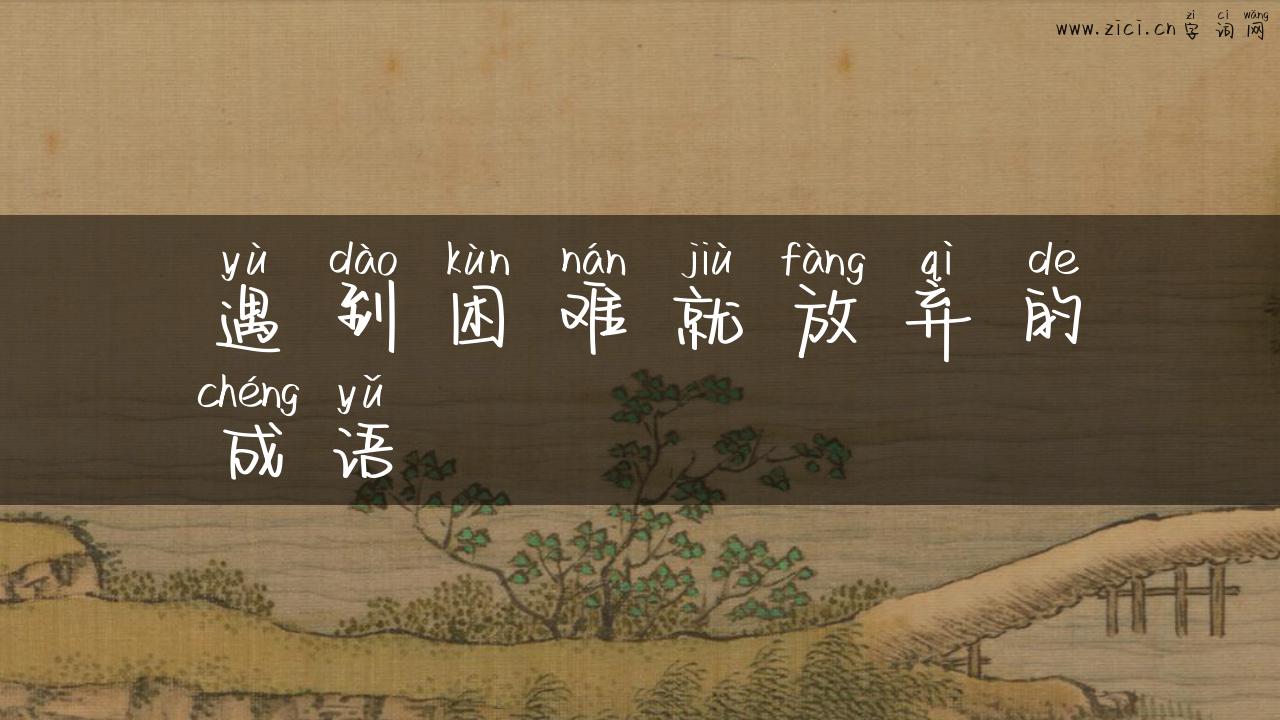 zì cí wǎng
www.zici.cn 字词网
yù dào kùn nán jiù fàng qì de
遇到困难就放弃的
chéng yǔ
成语